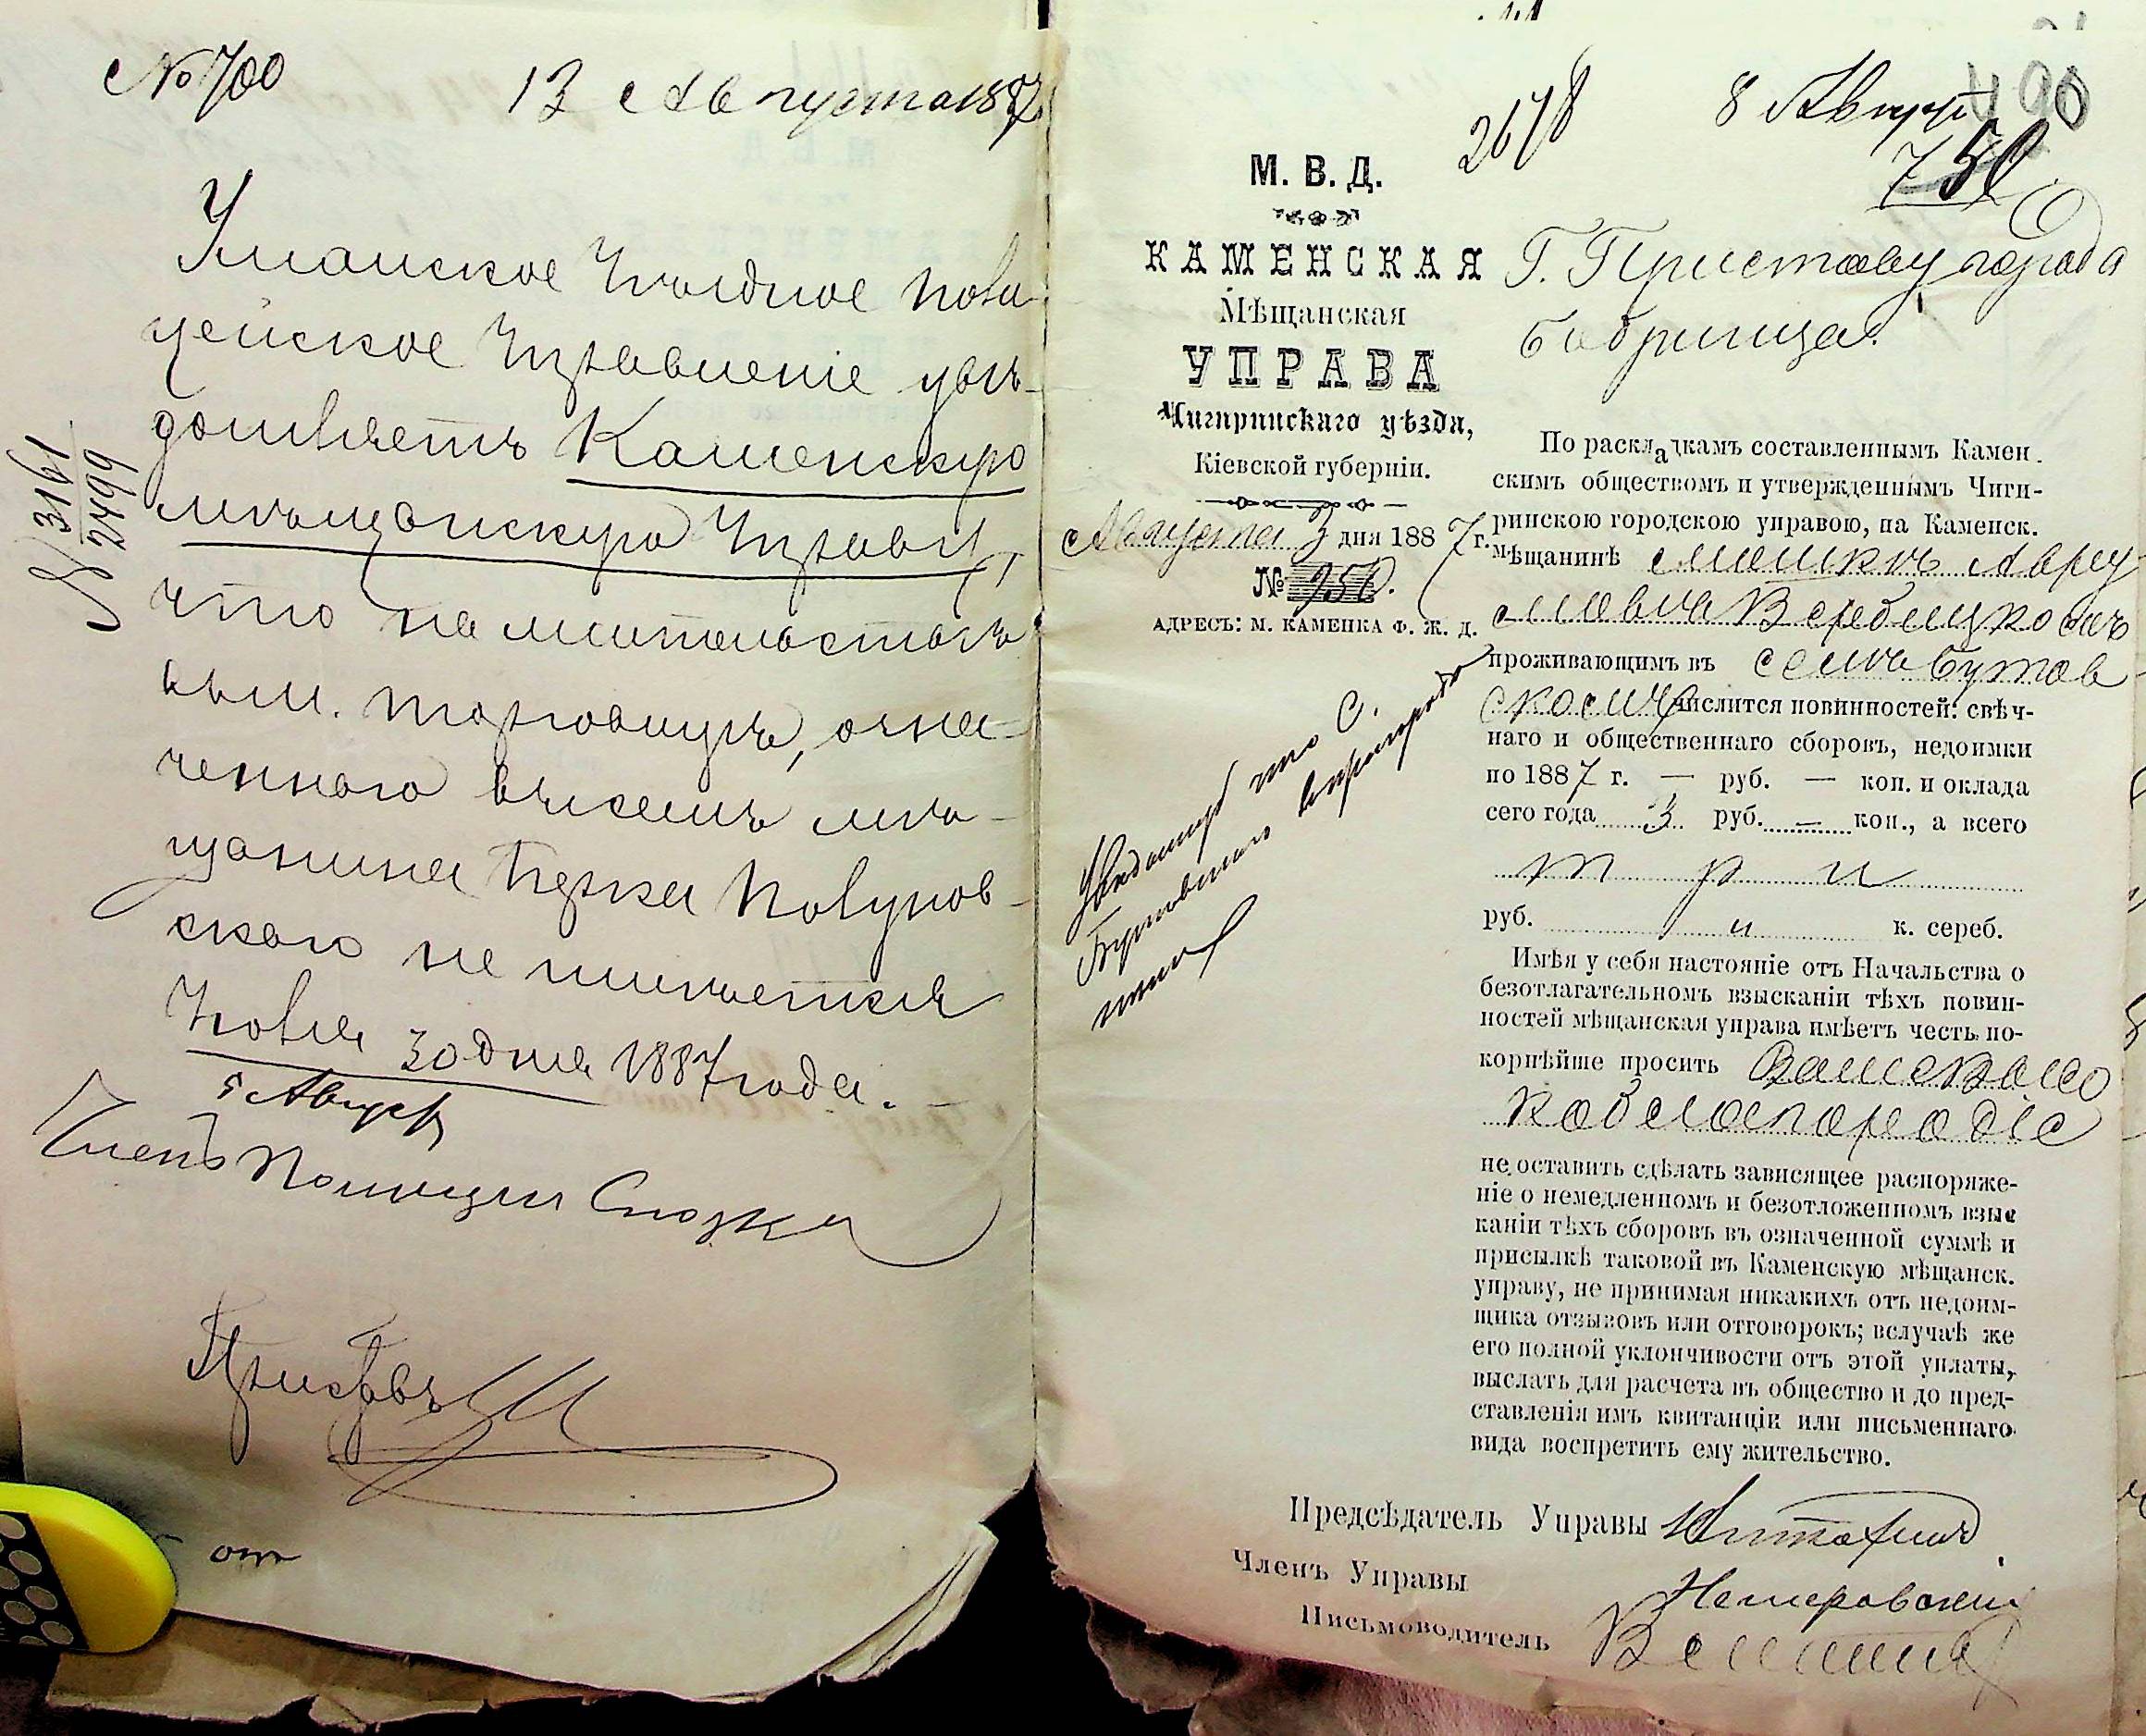 № 700
13 Августа 1887
Уманское Уѣздное Поли-
цейское Управленіе увѣ-
домляетъ Каменскую
мѣщанскую Управу,
что на жительствѣ
въ м. Торговицѣ, озна-
ченнаго въ семъ мѣ-
щанина Берка
скаго не имѣется
Іюля 30 дня 1887 года.
5 Август
Членъ Полиціи
Приставъ
3161
2499
от
2678
8 Август
490
750
М. В. Д.
КАМЕНСКАЯ
Мѣщанская
УПРАВА
Чигиринскаго уѣзда,
Кіевской губерніи.
Августа 3 дня 1887 г.
№ 750.
АДРЕСЪ: М. КАМЕНКА Ф. Ж. Д.
Г. Приставу города
Бобринца.
По раскладкамъ составленнымъ Камен.
скимъ обществомъ и утвержденнымъ Чиги-
ринскою городскою управою, на Каменск.
мѣщанинѣ Мошкѣ Авру
мовиче Вербицкомъ
проживающимъ въ селѣ Бутов
ском числится повинностей: свѣч-
наго и общественнаго сборовъ, недоимки
по 1887 г. — руб. — коп. и оклада
сего года 3 руб. — коп., а всего
три
руб. и к. сереб.
Имѣя у себя настояніе отъ Начальства о
безотлагательномъ взысканіи тѣхъ повин-
ностей мѣщанская управа имѣетъ честь по-
корнѣйше просить Ваше Высо
коблагородіе
не оставить сдѣлать зависящее распоряже-
ніе о немедленномъ и безотложенномъ взыс
каніи тѣхъ сборовъ въ означенной суммѣ и
присылкѣ таковой въ Каменскую мѣщанск.
управу, не принимая никакихъ отъ недоим-
щика отзывовъ или отговорокъ; вслучаѣ же
его полной уклончивости отъ этой уплаты,
выслать для расчета въ общество и до пред-
ставленія имъ квитанціи или письменнаго
вида воспретить ему жительство.
Предсѣдатель Управы
Членъ Управы
Письмоводитель